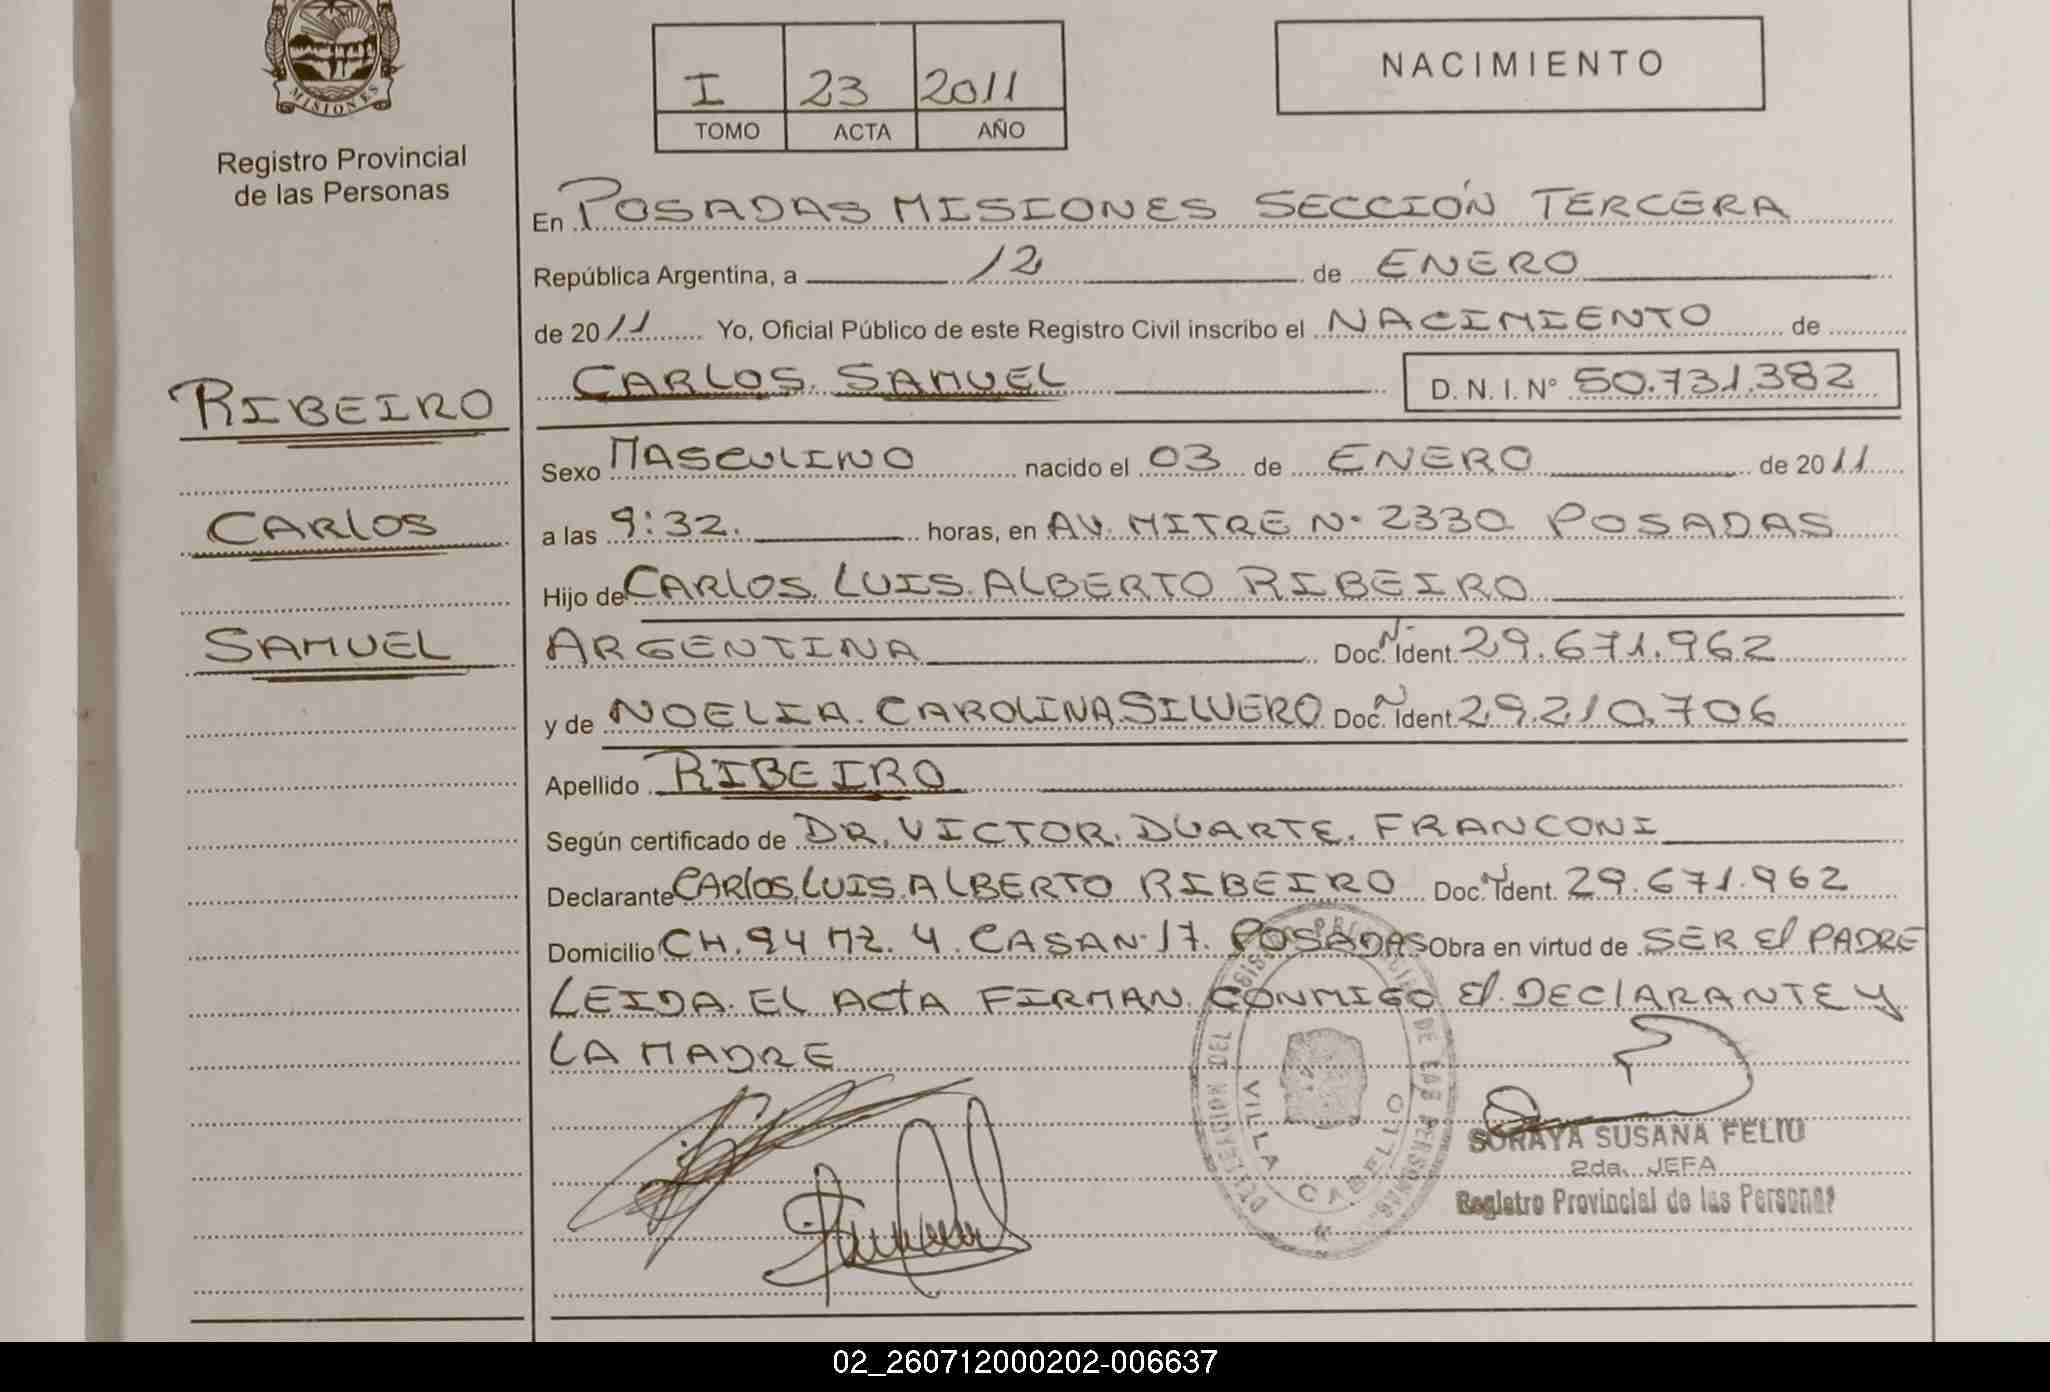 MISIONES
Registro Provincial
de las Personas
I 23 2011
TOMO ACTA AÑO
NACIMIENTO
En POSADAS MISIONES SECCIÓN TERCERA
República Argentina, a 12 de ENERO
de 2011 Yo, Oficial Público de este Registro Civil inscribo el NACIMIENTO de
CARLOS SAMUEL D. N. I. Nº 50.731.382
RIBEIRO
CARLOS
SAMUEL
Sexo MASCULINO nacido el 03 de ENERO de 2011
a las 9:32. horas, en AV. MITRE Nº 2330 POSADAS
Hijo de CARLOS LUIS ALBERTO RIBEIRO
ARGENTINA Doc. N Ident. 29.671.962
y de NOELIA CAROLINA SILVERO Doc. N Ident. 29.210.706
Apellido RIBEIRO
Según certificado de DR. VICTOR DUARTE FRANCONI
Declarante CARLOS LUIS ALBERTO RIBEIRO Doc. N Ident. 29.671.962
Domicilio CH. 94 MZ. 4. CASA Nº 17. POSADAS Obra en virtud de SER El PADRE
LEIDA EL ACTA FIRMAN CONMIGO El DEClARANTE y
LA MADRE
DELEGACION DEL REGISTRO PROVINCIAL DE LAS PERSONAS
VILLA CABELLO
SORAYA SUSANA FELIU
2da. JEFA
Registro Provincial de las Personas
02_260712000202-006637